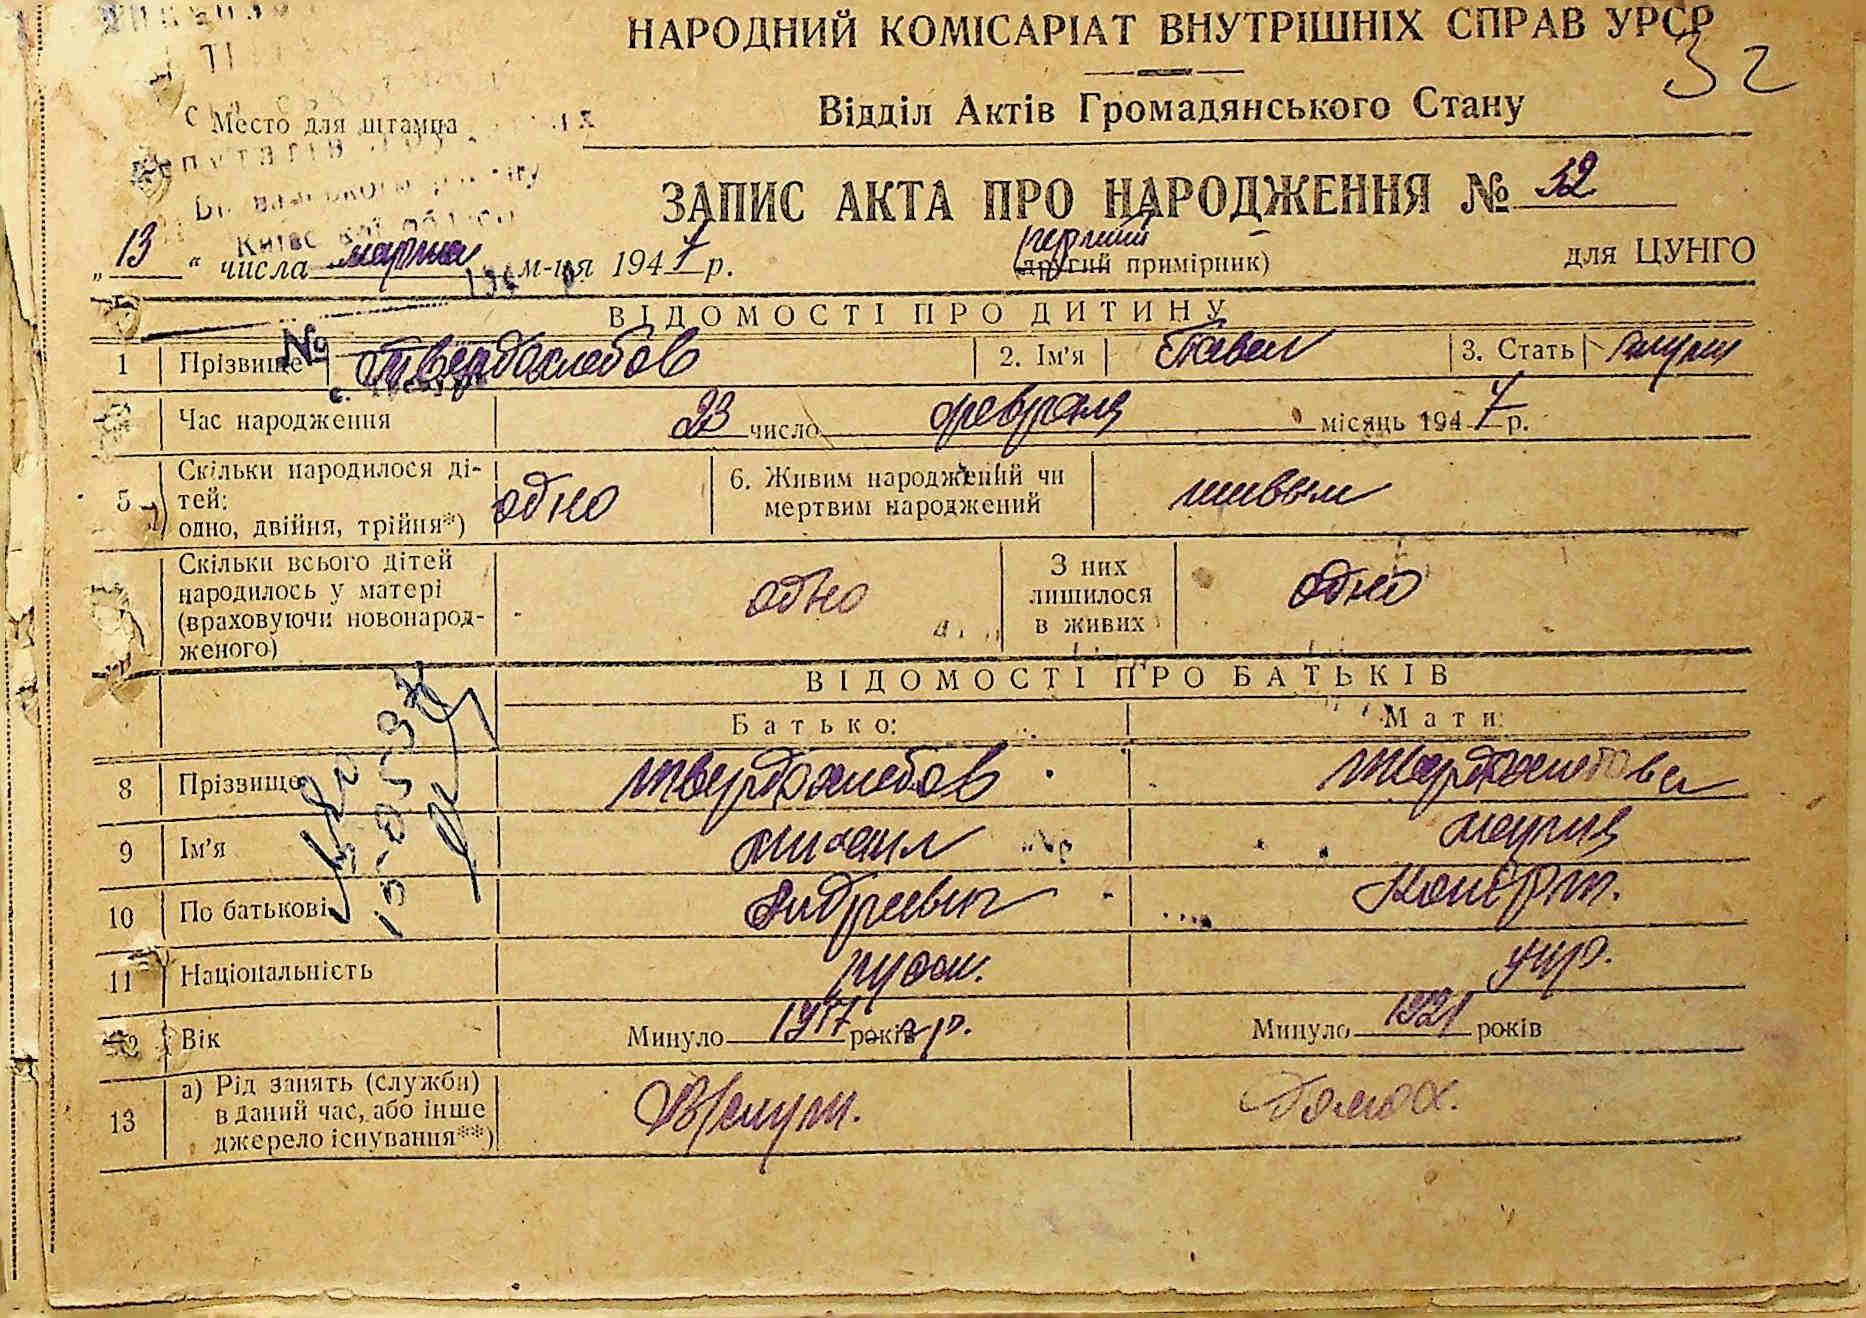 НАРОДНИЙ КОМІСАРІАТ ВНУТРІШНІХ СПРАВ УРСР
32
Відділ Актів Громадянського Стану
Место для штампа
ЗАПИС АКТА ПРО НАРОДЖЕННЯ № 52
„13“ числа марта м-ця 1947 р.
первий
(другий примірник)
для ЦУНГО
ВІДОМОСТІ ПРО ДИТИНУ
1 Прізвище Твердохлебов 2. Ім'я Павел 3. Стать муж
Час народження 23 число февраля місяць 1947 р.
5 Скільки народилося ді-
тей:
одно, двійня, трійня*)
одно
6. Живим народжений чи
мертвим народжений
живым
Скільки всього дітей
народилось у матері
(враховуючи новонарод-
женого)
одно
З них
лишилося
в живих
одно
ВІДОМОСТІ ПРО БАТЬКІВ
Батько: Мати:
8 Прізвище Твердохлебов Твердохлебова
9 Ім'я Михаил Мария
10 По батькові Андреевич
11 Національність русск. укр.
12 Вік Минуло 1917 років г р. Минуло 1921 років
13 а) Рід занять (служби)
в даний час, або інше
джерело існування**)
В/служ. домох.